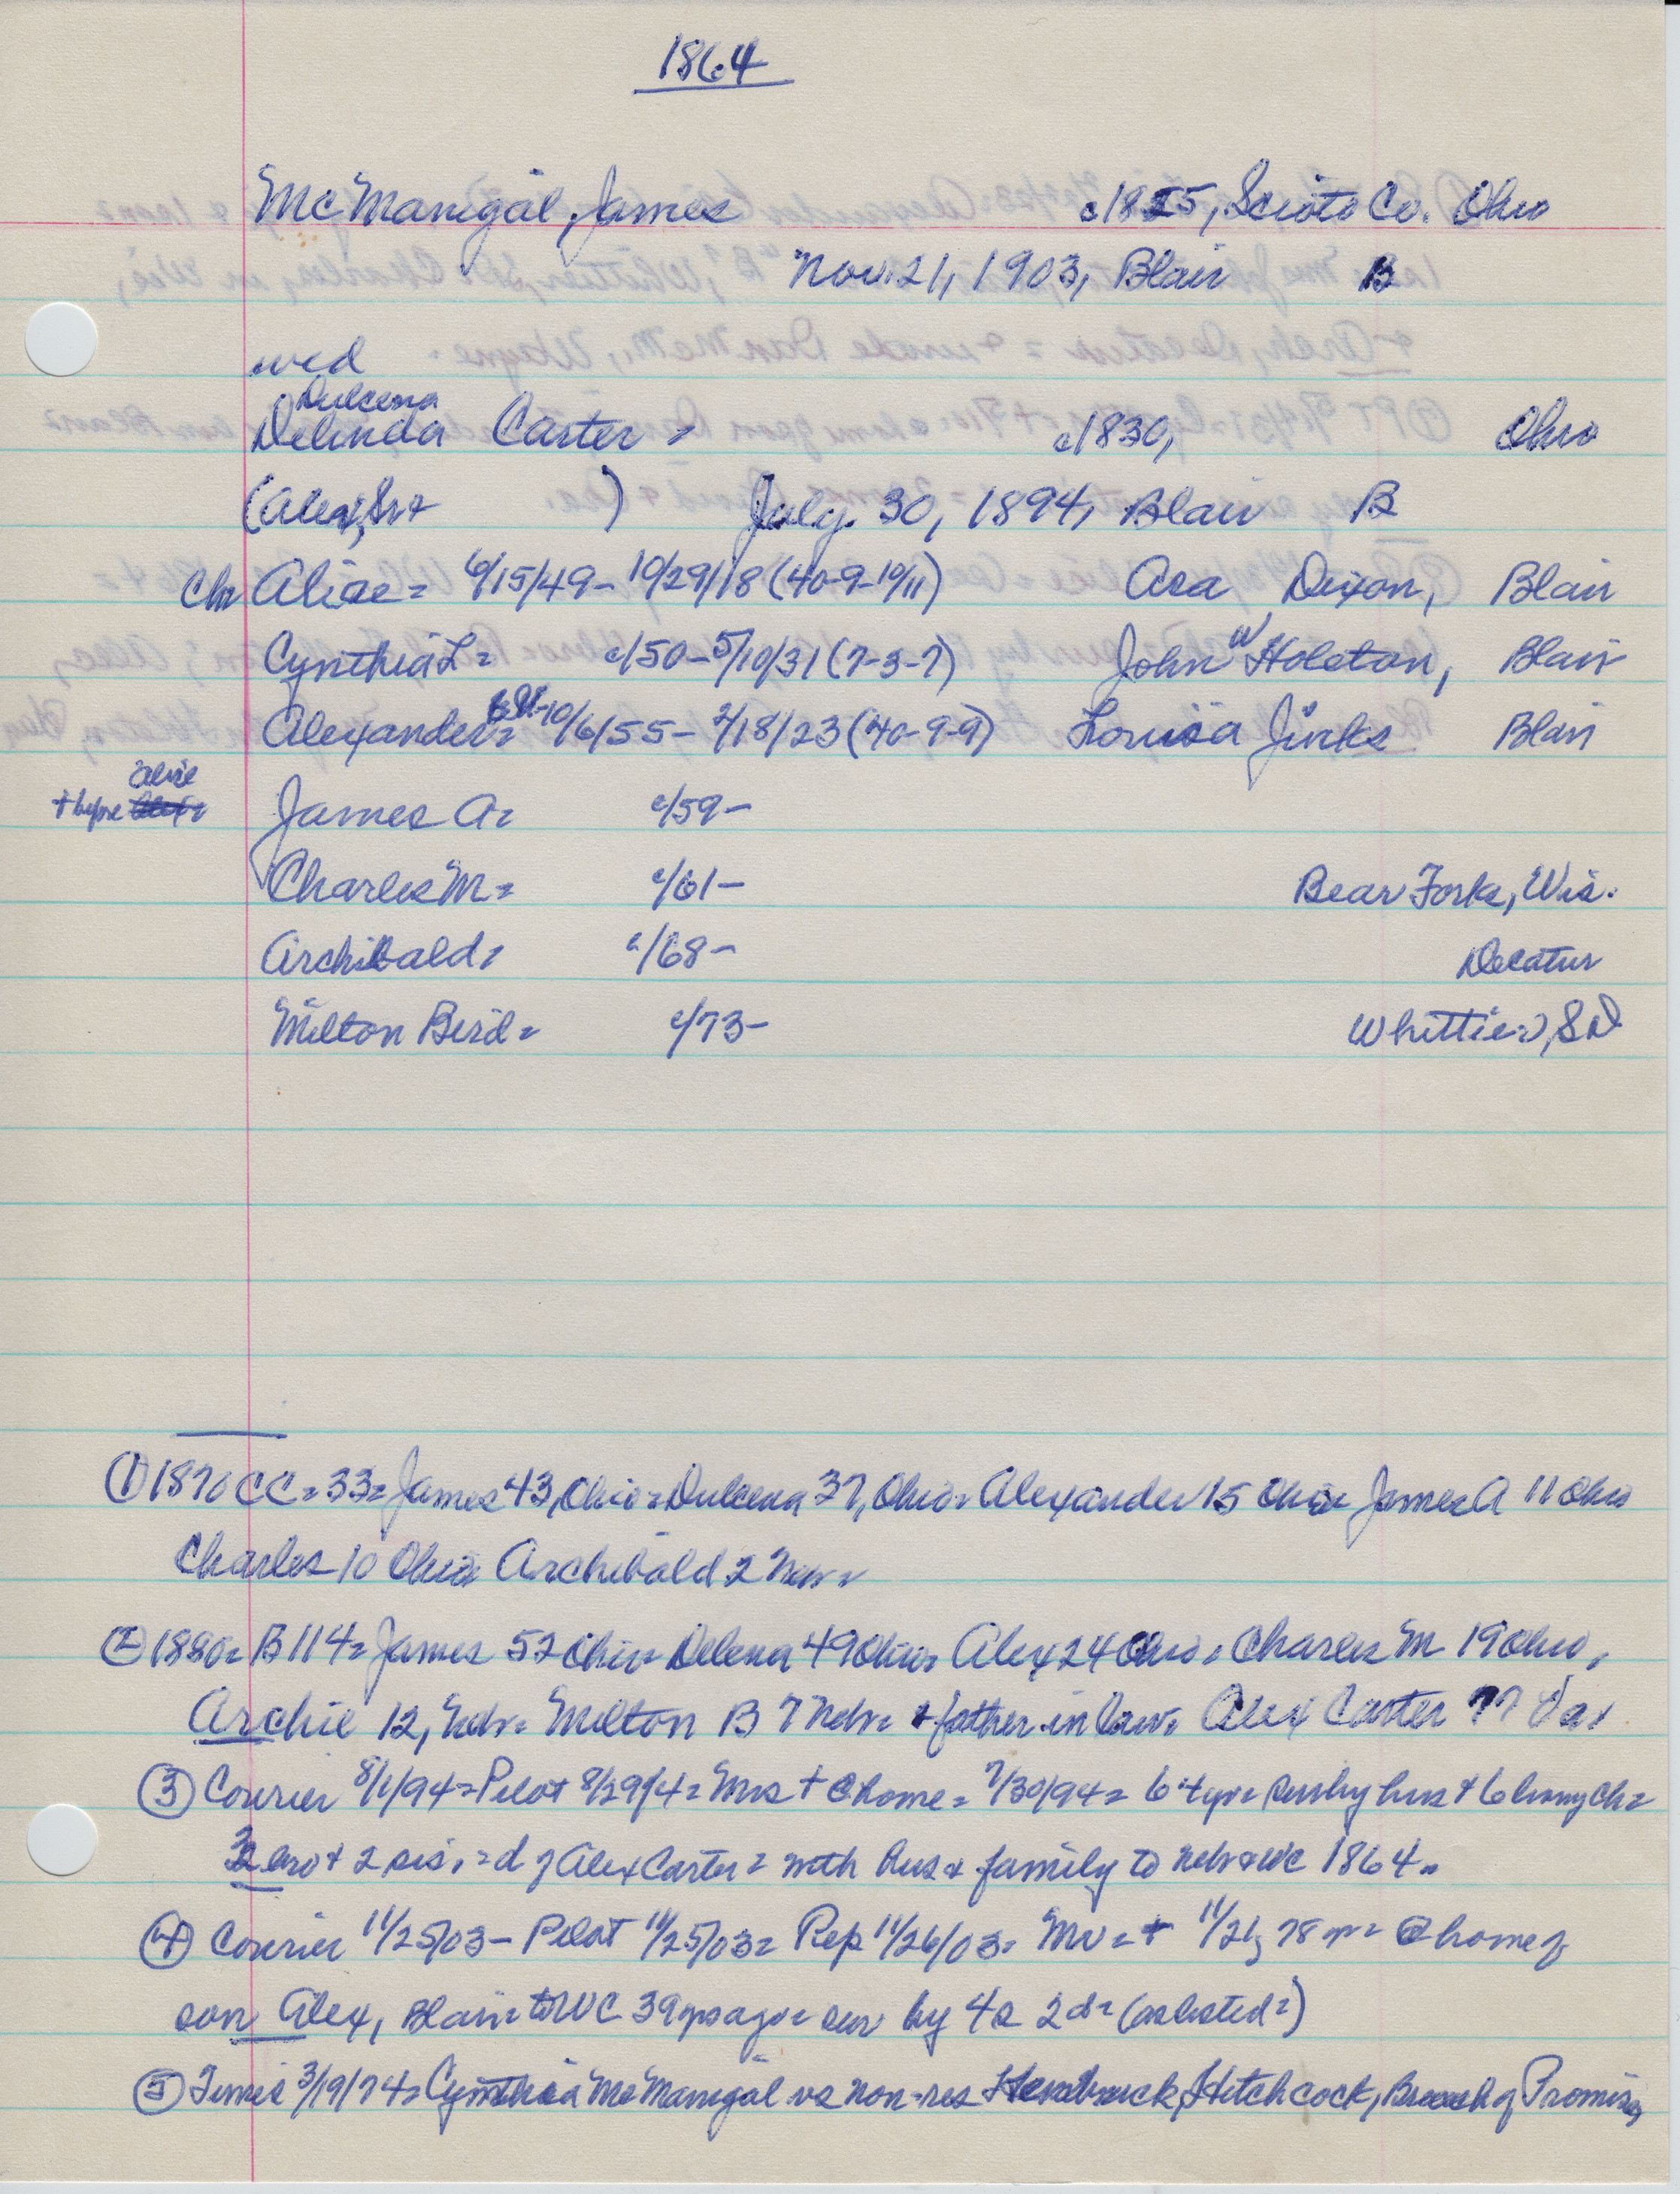 1864
McManigal, James c1825, Scioto Co. Ohio
Nov. 21, 1903, Blair B
wed
Dulcena
Delinda Carter = c1830, Ohio
(Alex, Sr + ) July. 30, 1894, Blair B
Ch Alice = 6/15/49 - 10/29/18 (40-9-10/11) Asa Dixon, Blair
Cynthia L = c/50 - 5/10/31 (7-3-7) John W Holeton, Blair
Alexander = 10/6/55 - 2/18/23 (40-9-9) Louisa Jinks Blair
alive
+ before
James A = c/59 -
Charles M = c/61 - Bear Forks, Wis.
Archibald = c/68 - Decatur
Milton Bird = c/73 - Whittier, SD
① 1870 CC = 33 = James 43, Ohio = Dulcena 37, Ohio = Alexander 15 Ohio = James A 11 Ohio
Charles 10 Ohio Archibald 2 Neb =
② 1880 = B 114 = James 52 Ohio = Delena 49 Ohio = Alex 24 Ohio = Charles M 19 Ohio,
Archie 12, Neb = Milton B 7 Neb = + father-in-law = Alex Carter 77 Va
③ Courier 8/1/94 = Pilot = Mrs + @ home = 7/30/94 = 64 yr = sur by hus + 6 ch =
3 bro + 2 sis, = d of Alex Carter = with hus + family to Neb + WC 1864 =
④ Courier 11/25/03 - Pilot 11/25/03 = Rep 11/26/03 = Mr = + 11/21, 78 yr = @ home of
son Alex, Blair = to WC 39 yrs ago = sur by 4 s 2 d = (as listed =)
⑤ Times 3/19/74 = Cynthia McManigal vs non-res Hitchcock, Breach of Promise,